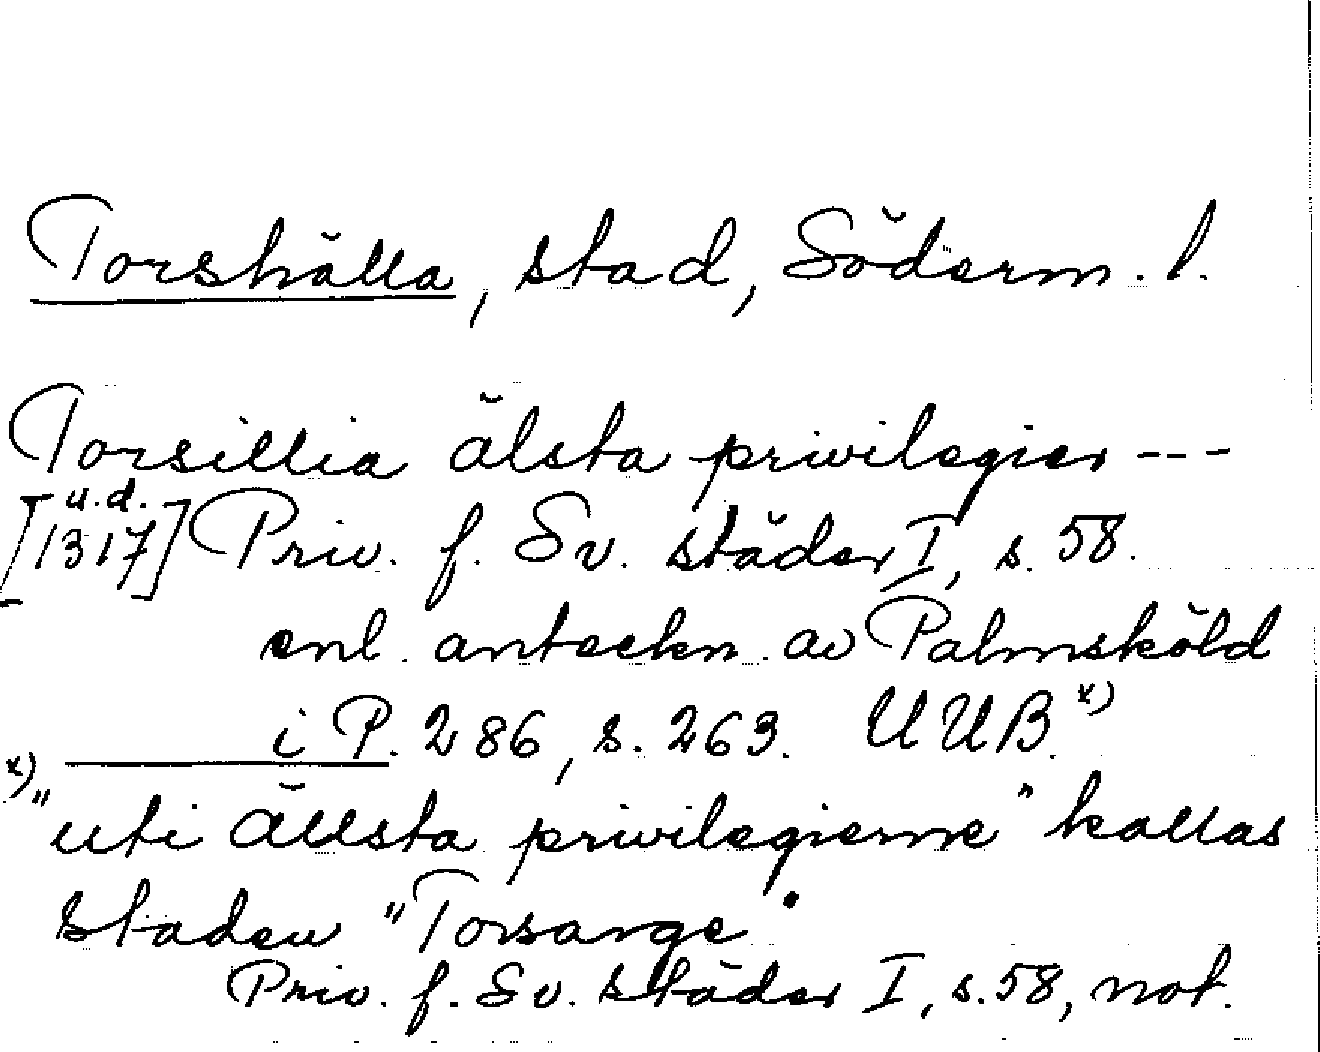 Torshälla, stad, Söderm. l.
Torsillia älsta privilegier ---
u.d.
[1317] Priv. f. Sv. städer I, s. 58.
enl. anteckn. av Palmsköld
i P. 286, s. 263. UUB. x)
x) "uti ällsta privilegierne" kallas
staden "Torsarge"
Priv. f. Sv. städer I, s. 58, not.